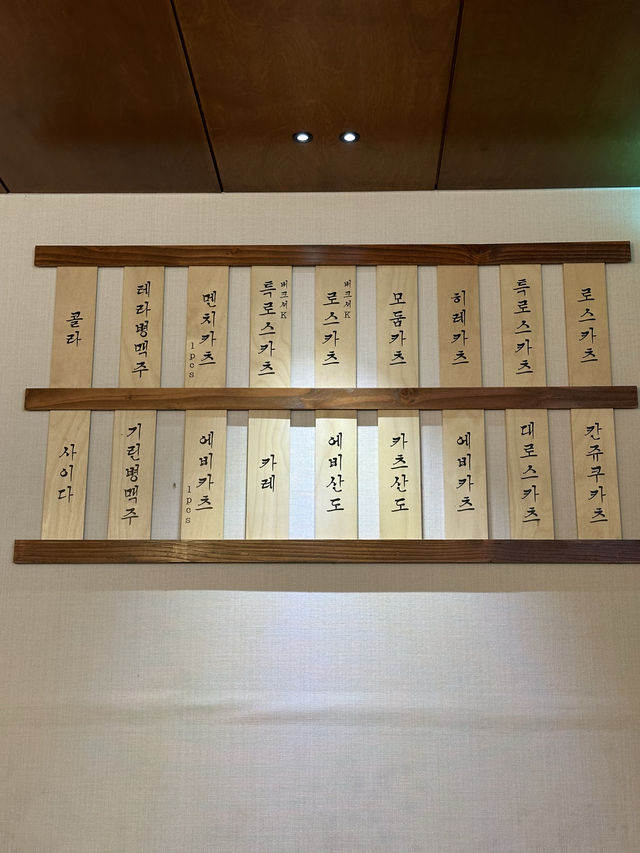 콜라
테라병맥주
멘치카츠
1pcs
버크셔K
특로스카츠
버크셔K
로스카츠
모둠카츠
히레카츠
특로스카츠
로스카츠
사이다
기린병맥주
에비카츠
1pcs
카레
에비산도
카츠산도
에비카츠
대로스카츠
칸쥬쿠카츠